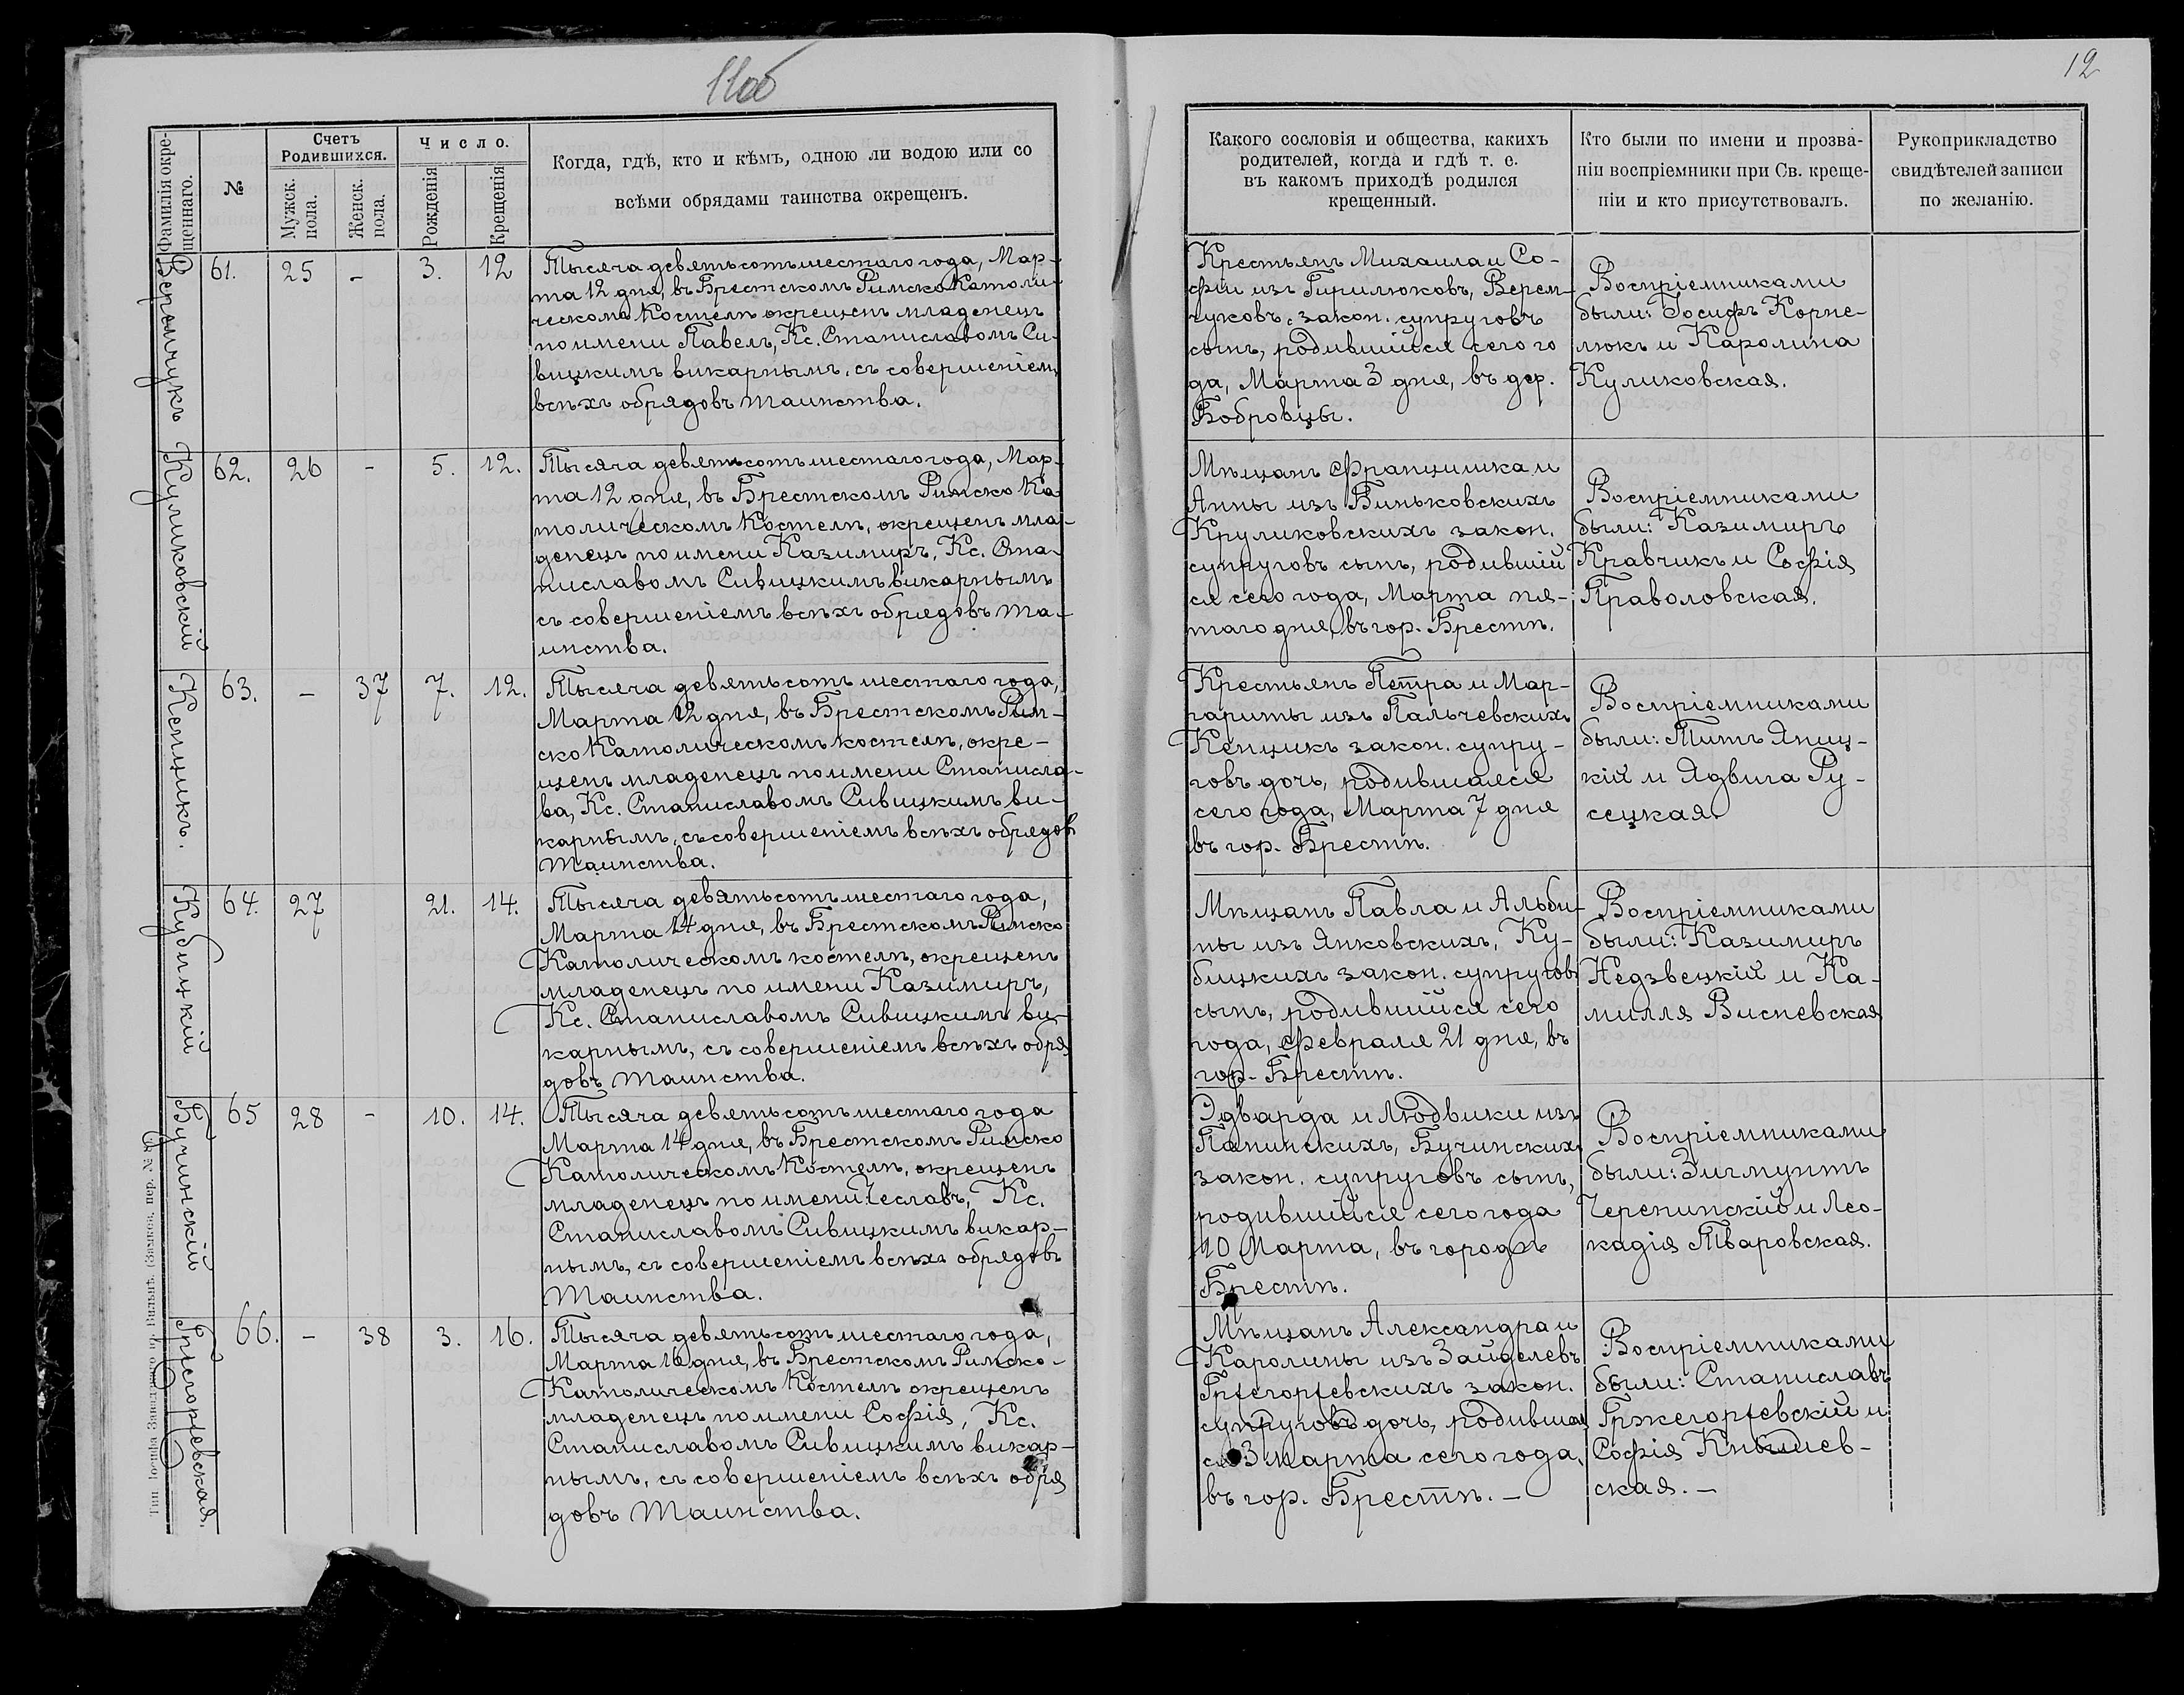 11об
12
Фамилія окре-
щеннаго.
№
Счетъ
Родившихся.
Мужск.
пола.
Женск.
пола.
Число.
Рожденія
Крещенія
Когда, гдѣ, кто и кѣмъ, одною ли водою или со
всѣми обрядами таинства окрещенъ.
Какого сословія и общества, какихъ
родителей, когда и гдѣ т. е.
въ какомъ приходѣ родился
крещенный.
Кто были по имени и прозва-
ніи воспріемники при Св. креще-
ніи и кто присутствовалъ.
Рукоприкладство
свидѣтелей записи
по желанію.
Веромчукъ
61.
25
-
3.
12
Тысяча девятьсотъ шестаго года, Мар-
та 12 дня, въ Брестскомъ Римско Католи-
ческомъ Костелѣ окрещенъ младенецъ
по имени Павелъ, Кс. Станиславомъ Си-
вицкимъ викарнымъ, съ совершеніемъ
всѣхъ обрядовъ таинства.
Крестьянъ Михаила и Со-
фіи изъ Гирилюковъ, Верем-
чуковъ, закон. супруговъ
сынъ, родившійся сего го
да, Марта 3 дня, въ дер.
Бобровцы.
Воспріемниками
были: Іосифъ Корне-
люкъ и Каролина
Куликовская.
Куликовскій
62.
26
-
5.
12.
Тысяча девятьсотъ шестаго года, Мар-
та 12 дня, въ Брестскомъ Римско Ка
толическомъ Костелѣ, окрещенъ мла-
денецъ по имени Казимиръ, Кс. Ста-
ниславомъ Сивицкимъ викарнымъ
съ совершеніемъ всѣхъ обрядовъ та-
инства.
Мѣщанъ Францишка и
Анны изъ Биньковскихъ
Круликовскихъ закон.
супруговъ сынъ, родившій
ся сего года, Марта пя-
таго дня, въ гор. Брестѣ.
Воспріемниками
были: Казимиръ
Кравчикъ и Софія
Праволовская.
Кенцикъ.
63.
-
37
7.
12.
Тысяча девятьсотъ шестаго года,
Марта 12 дня, въ Брестскомъ Рим-
ско Католическомъ костелѣ, окре-
щенъ младенецъ по имени Станисла-
ва, Кс. Станиславомъ Сивицкимъ ви-
карнымъ, съ совершеніемъ всѣхъ обрядовъ
Таинства.
Крестьянъ Петра и Мар-
гариты изъ Пальчевскихъ
Кенцикъ закон. супру-
говъ дочь, родившаяся
сего года, Марта 7 дня
въ гор. Брестѣ.
Воспріемниками
были: Титъ Яниц-
кій и Ядвига Ру-
сецкая.
Кубицкій
64.
27
21.
14.
Тысяча девятьсотъ шестаго года,
Марта 14 дня, въ Брестскомъ Римско
Католическомъ костелѣ, окрещенъ
младенецъ по имени Казимиръ,
Кс. Станиславомъ Сивицкимъ ви-
карнымъ, съ совершеніемъ всѣхъ обря
довъ Таинства.
Мѣщанъ Павла и Альби-
ны изъ Янковскихъ, Ку-
бицкихъ закон. супруговъ
сынъ, родившійся сего
года, Февраля 21 дня, въ
гор. Брестѣ.
Воспріемниками
были: Казимиръ
Недзвецкій и Ка-
милля Висневская
Бучинскій
65
28
-
10.
14.
Тысяча девятьсотъ шестаго года
Марта 14 дня, въ Брестскомъ Римско
Католическомъ Костелѣ, окрещенъ
младенецъ по имени Чеславъ, Кс.
Станиславомъ Сивицкимъ викар-
нымъ, съ совершеніемъ всѣхъ обрядовъ
Таинства.
Эдварда и Людвики изъ
Папинскихъ, Бучинскихъ
закон. супруговъ сынъ,
родившійся сего года
10 Марта, въ городѣ
Брестѣ.
Воспріемниками
были: Зигмунтъ
Черепинскій и Лео-
кадія Тваровская.
Гржегоржевская.
66.
-
38
3.
16.
Тысяча девятьсотъ шестаго года,
Марта 16 дня, въ Брестскомъ Римско-
Католическомъ Костелѣ окрещенъ
младенецъ по имени Софія, Кс.
Станиславомъ Сивицкимъ викар-
нымъ, съ совершеніемъ всѣхъ обря
довъ Таинства.
Мѣщанъ Александра и
Каролины изъ Зайделевъ
Гржегоржевскихъ закон.
супруговъ дочь, родивша
ся 3 марта сего года,
въ гор. Брестѣ. -
Воспріемниками
были: Станиславъ
Гржегоржевскій и
Софія
ская. -
Тип. Іосифа Завадзкаго въ Вильнѣ. (Замков. пер. №